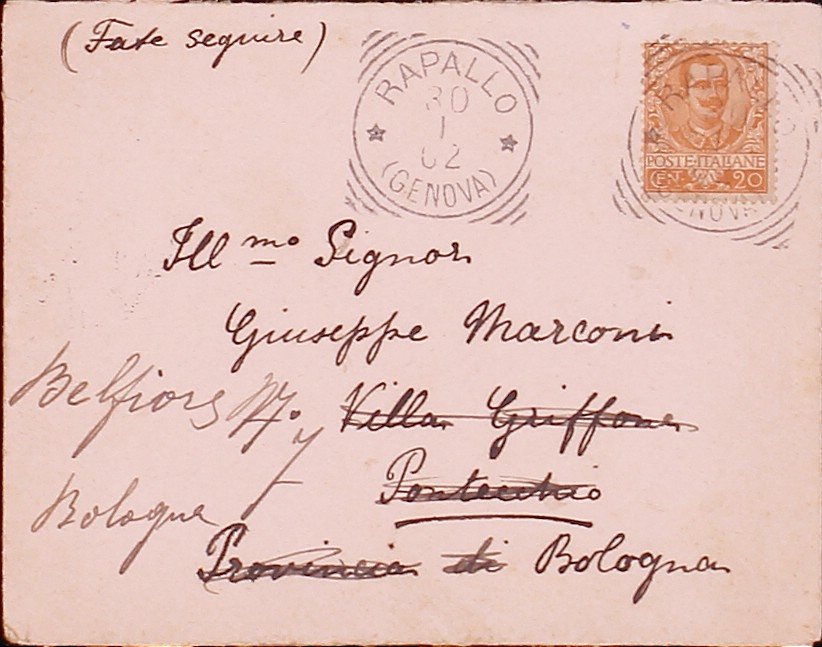 (Fate seguire)
RAPALLO
30
1
02
(GENOVA)
POSTE·ITALIANE
CENT. 20
Ill mo Signor
Giuseppe Marconi
Belfiore No 7
Villa Griffone
Pontecchio
Bologna
Provincia di Bologna